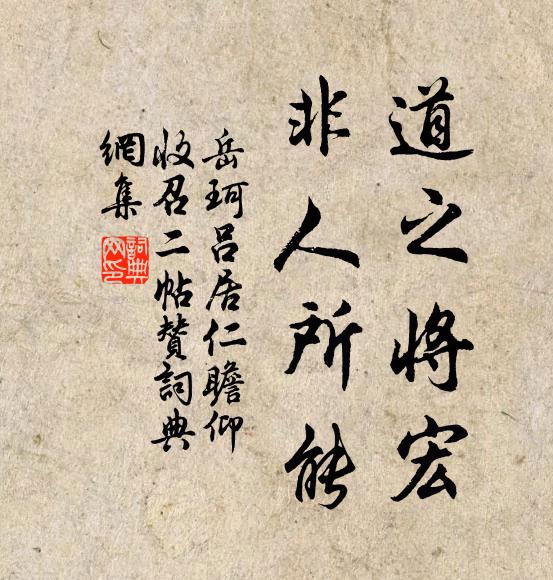 道之將宏
非人所能
岳珂呂居仁瞻仰
收召二帖贊詞典
網集
詞典
网印